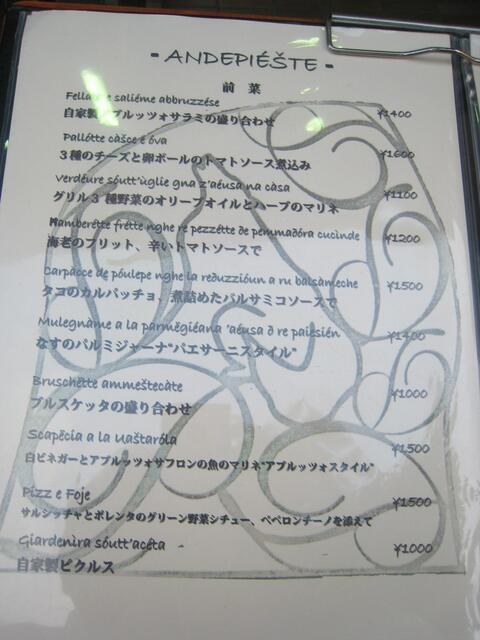 - ANDEPIÉŠTE -
前菜
saliéme abbruzzése ¥1400
自家製アブルッツォサラミの盛り合わせ
Pallótte càšce é óva ¥1600
3種のチーズと卵ボールのトマトソース煮込み
verdéure sóutt'ùglie gna z'aéusa na càsa ¥1100
グリル3種野菜のオリーブオイルとハーブのマリネ
Mamberétte frétte nghe re pezzétte de pemmaðóra cucìnde ¥1200
海老のフリット、辛いトマトソースで
Carpacce de póulepe nghe la reðuzzióun a ru balsàmeche ¥1500
タコのカルパッチョ、煮詰めたバルサミコソースで
Mulegnàme a la pàrmëgiéana 'aéusa ð re paiésién ¥1400
なすのパルミジャーナ"パエサーニスタイル"
Bruschëtte ammeštecàte ¥1000
ブルスケッタの盛り合わせ
Scapëcia a la Uaštaróla ¥1500
白ビネガーとアブルッツォサフロンの魚のマリネ"アブルッツォスタイル"
Pizz e Foje ¥1500
サルシッチャとポレンタのグリーン野菜シチュー、ペペロンチーノを添えて
Giardenìra sóutt'acéta ¥1000
自家製ピクルス